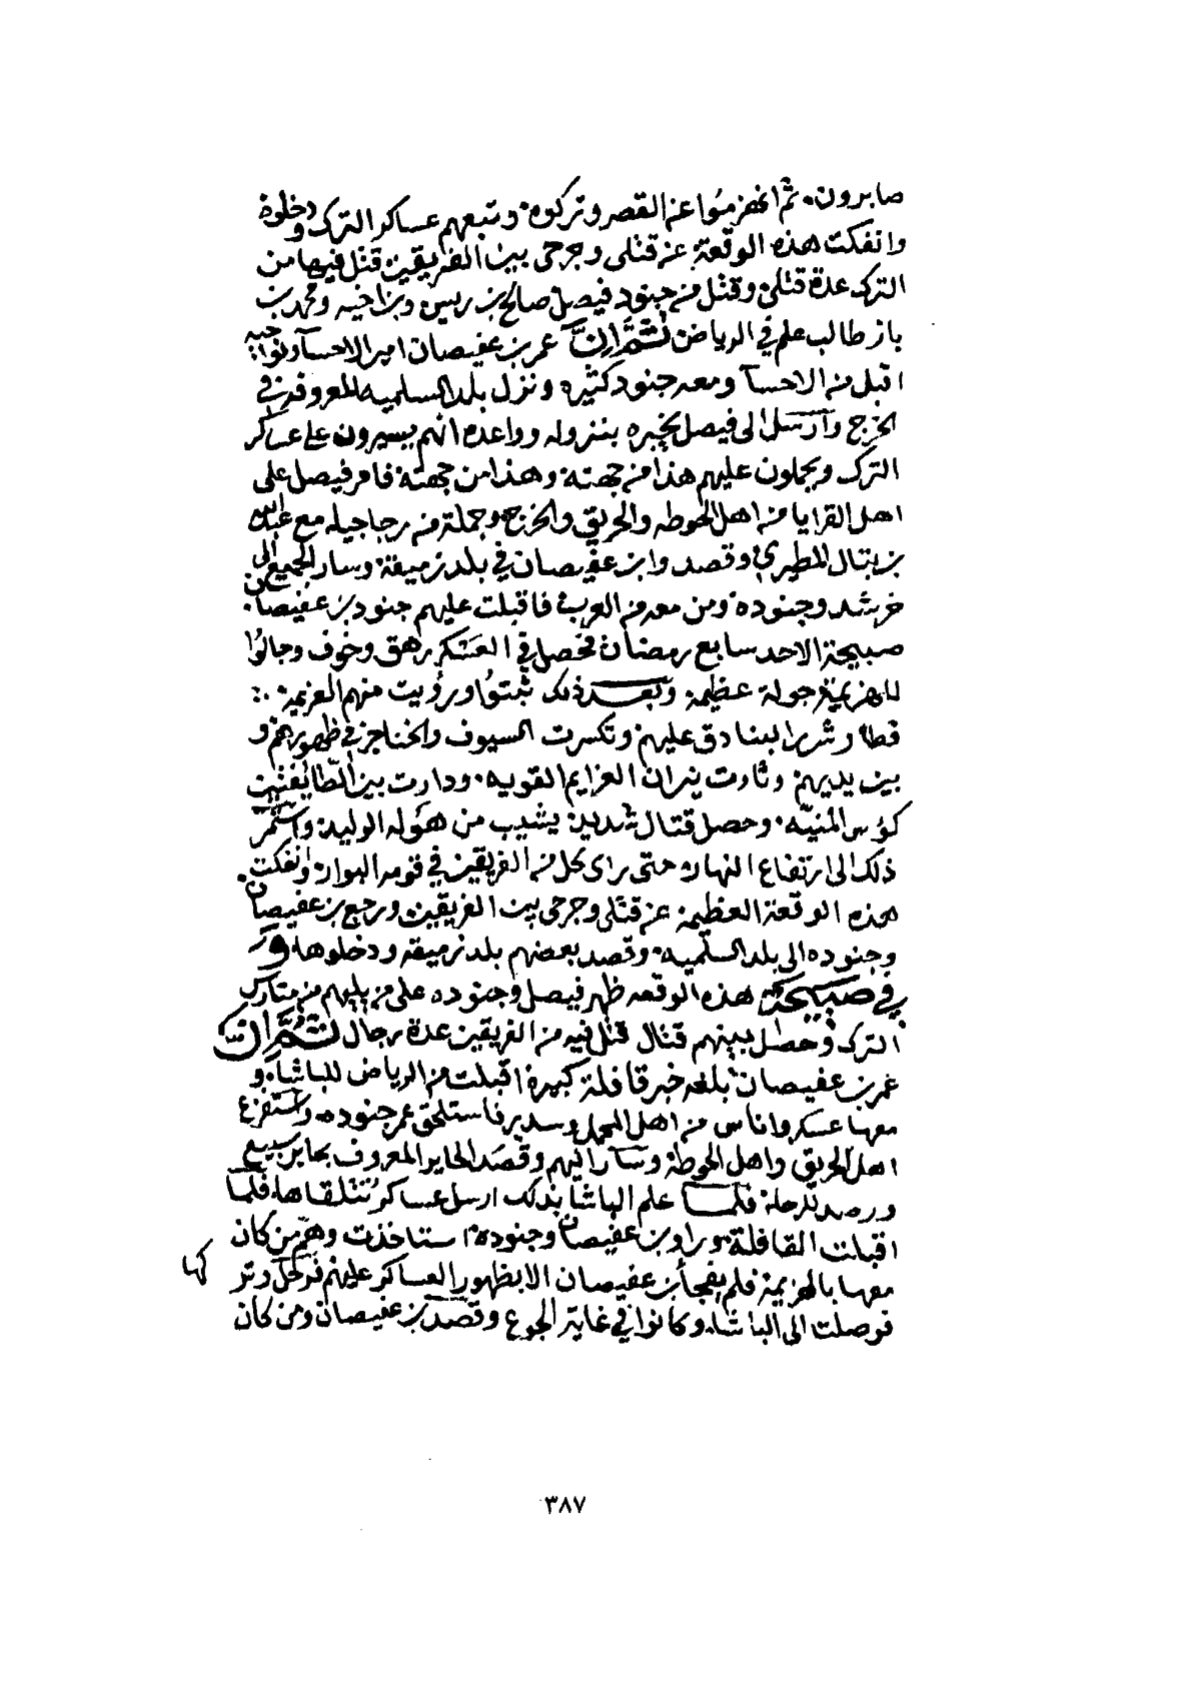 صابرون. ثم انهزموا عن القصر وتركوه. وتبعهم عساكر الترك ودخلوه
وانفكت هذه الوقعة عن قتلى وجرحى بين الفريقين قتل فيها من
الترك عدة قتلى وقتل من جنود فيصل صالح بن ريس ومحمد بن
باز طالب علم في الرياض ثم ان عمر بن عفيصان امير الاحسا ونواحيه
اقبل من الاحسا ومعه جنود كثيره ونزل بلد السلميه المعروفه في
الخرج وارسل الى فيصل يخبره بنزوله وواعده انهم يسيرون على عساكر
الترك ويحملون عليهم هذا من جهته وهذا من جهته فامر فيصل على
اهل القرايا من اهل الحوطه والحريق والخرج وجملة من رجاجيله مع عبدالله
بن بتال المطيري وقصدوا بن عفيصان في بلد زميقه وسار الجميع الى
خرشد وجنوده ومن معه من العرب فاقبلت عليهم جنود بن عفيصان.
صبيحة الاحد سابع رمضان فحصل في العسكر رهق وخوف وجالوا
للهزيمة جولة عظيمة وبعد ذلك ثبتوا ورؤيت منهم العزيمة
فطار شرر البنادق عليهم وتكسرت السيوف والخناجر في ظهورهم و
بين يديهم وثارت نيران العزايم القويه. ودارت بين الطايفتين
كؤس المنيه. وحصل قتال شديد يشيب من هوله الوليد واستمر
ذلك الى ارتفاع النهار حتى راى كل من الفريقين في قومه البوار وانفكت
هذه الوقعة العظيمة عن قتلى وجرحى بين الفريقين ورجع بن عفيصان
وجنوده الى بلد السلميه. وقصد بعضهم بلد زميقه ودخلوها و
في صبيحة هذه الوقعه ظهر فيصل وجنوده على من يليهم من متارس
الترك وحصل بينهم قتال قتل فيه من الفريقين عدة رجال ثم ان
عمر بن عفيصان بلغه خبر قافلة كبيرة اقبلت من الرياض للباشا و
معها عسكر واناس من اهل المحمل وسدير فاستلحق عمر جنوده واستفزع
اهل الحريق واهل الحوطة وسار اليهم وقصد الحاير المعروف بحاير سبيع
ورصد للرحلة فلما علم الباشا بذلك ارسل عساكر تتلقاها فلما
اقبلت القافلة وراوا بن عفيصان وجنوده استاخذت وهم من كان
معها بالهزيمة فلم يفجأ بن عفيصان الا بظهور العساكر عليهم فرحل وتركها
فوصلت الى الباشا. وكانوا في غاية الجوع وقصد بن عفيصان ومن كان
٣٨٧